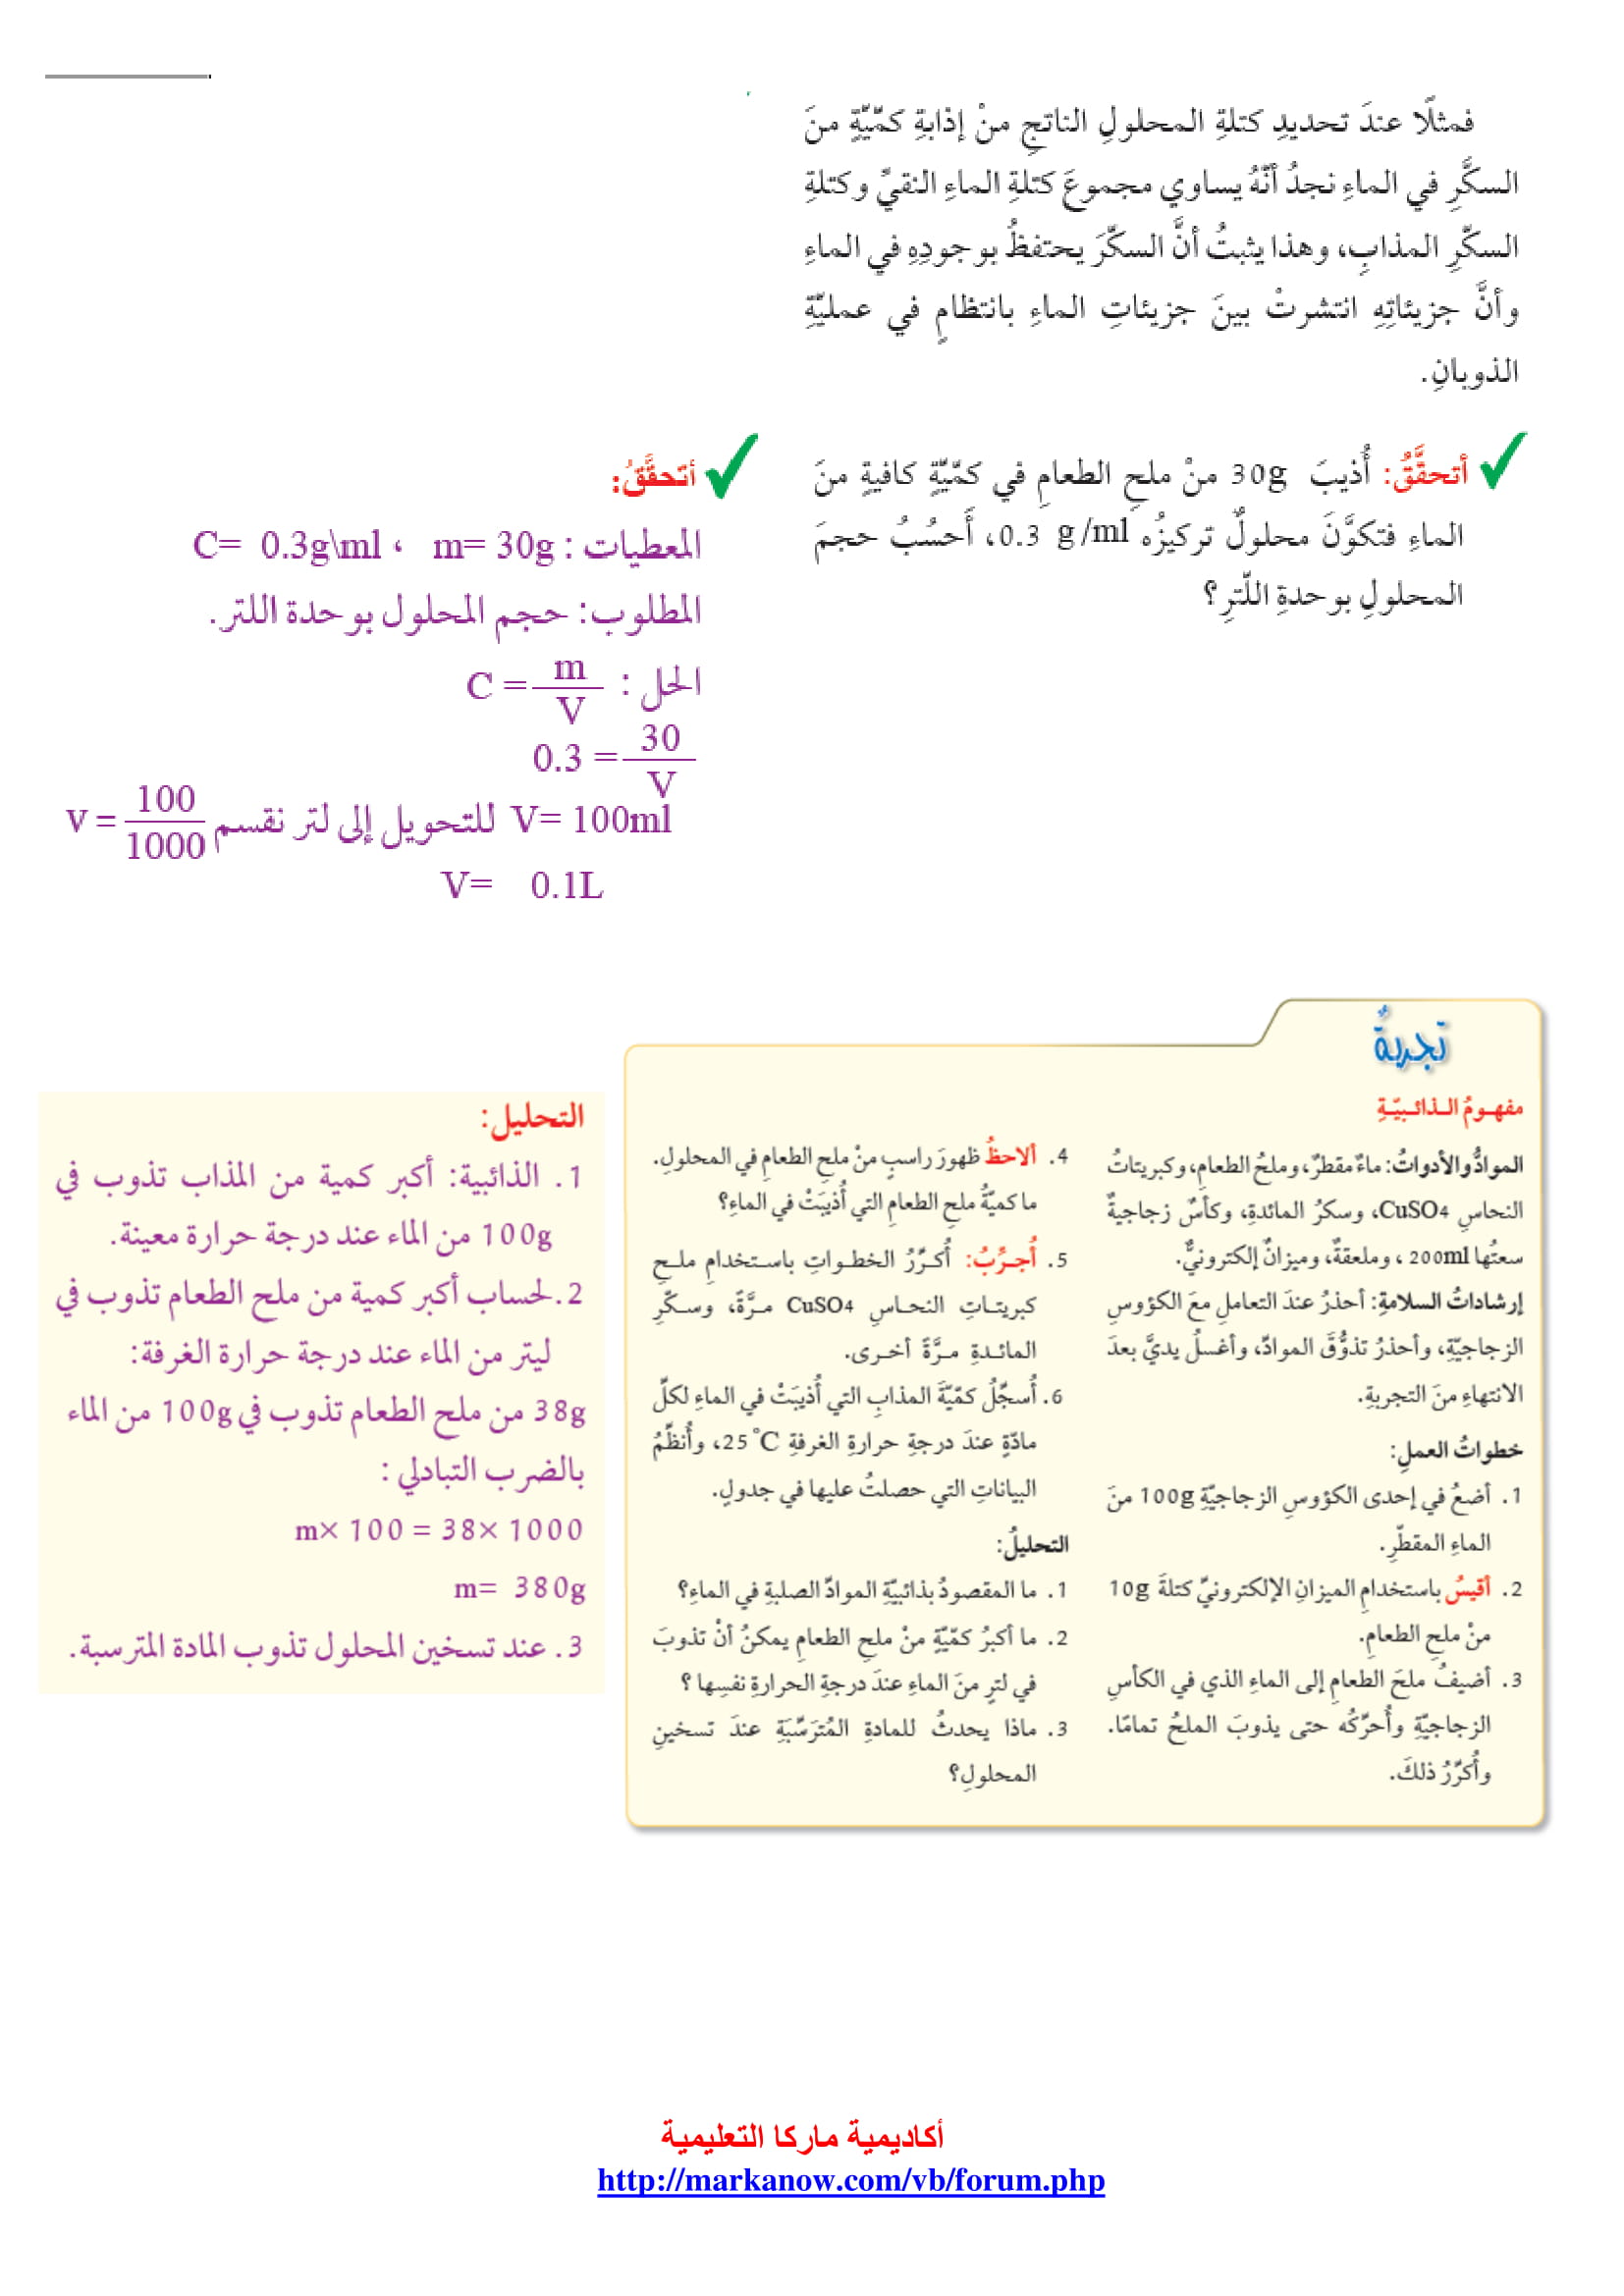 فمثلًا عندَ تحديدِ كتلةِ المحلولِ الناتجِ منْ إذابةِ كمّيّةٍ منَ
السكَّرِ في الماءِ نجدُ أنّهُ يساوي مجموعَ كتلةِ الماءِ النقيِّ وكتلةِ
السكّرِ المذابِ، وهذا يثبتُ أنَّ السكّرَ يحتفظُ بوجودِهِ في الماءِ
وأنَّ جزيئاتِهِ انتشرتْ بينَ جزيئاتِ الماءِ بانتظامٍ في عمليّةِ
الذوبانِ.
✓ أتحقَّقُ: أُذيبَ 30g منْ ملحِ الطعامِ في كمّيّةٍ كافيةٍ منَ
الماءِ فتكوَّنَ محلولٌ تركيزُه 0.3 g/ml، أَحسُبُ حجمَ
المحلولِ بوحدةِ اللّترِ؟
✓ أتحقَّقُ:
المعطيات : m= 30g ، C= 0.3g\ml
المطلوب: حجم المحلول بوحدة اللتر.
الحل : C = m/V
0.3 = 30/V
V= 100ml للتحويل إلى لتر نقسم v = 100/1000
V= 0.1L
تجربةٌ
مفهومُ الذائبيّةِ
الموادُّ والأدواتُ: ماءٌ مقطرٌ، وملحُ الطعامِ، وكبريتاتُ
النحاسِ CuSO4، وسكرُ المائدةِ، وكأسٌ زجاجيةٌ
سعتُها 200ml ، وملعقةٌ، وميزانٌ إلكترونيٌّ.
إرشاداتُ السلامةِ: أحذرُ عندَ التعاملِ معَ الكؤوسِ
الزجاجيّةِ، وأحذرُ تذوُّقَ الموادِّ، وأغسلُ يديَّ بعدَ
الانتهاءِ منَ التجربةِ.
خطواتُ العملِ:
1. أضعُ في إحدى الكؤوسِ الزجاجيّةِ 100g منَ
الماءِ المقطّرِ.
2. أقيسُ باستخدامِ الميزانِ الإلكترونيِّ كتلةَ 10g
منْ ملحِ الطعامِ.
3. أضيفُ ملحَ الطعامِ إلى الماءِ الذي في الكأسِ
الزجاجيّةِ وأُحرّكُه حتى يذوبَ الملحُ تمامًا.
وأُكرّرُ ذلكَ.
4. ألاحظُ ظهورَ راسبٍ منْ ملحِ الطعامِ في المحلولِ.
ما كميّةُ ملحِ الطعامِ التي أُذيبَتْ في الماءِ؟
5. أُجرِّبُ: أُكرِّرُ الخطواتِ باستخدامِ ملحِ
كبريتاتِ النحاسِ CuSO4 مرَّةً، وسكّرِ
المائدةِ مرَّةً أخرى.
6. أُسجّلُ كمّيّةَ المذابِ التي أُذيبَتْ في الماءِ لكلِّ
مادّةٍ عندَ درجةِ حرارةِ الغرفةِ 25°C، وأُنظّمُ
البياناتِ التي حصلتُ عليها في جدولٍ.
التحليلُ:
1. ما المقصودُ بذائبيّةِ الموادِّ الصلبةِ في الماءِ؟
2. ما أكبرُ كمّيّةٍ منْ ملحِ الطعامِ يمكنُ أنْ تذوبَ
في لترٍ منَ الماءِ عندَ درجةِ الحرارةِ نفسِها ؟
3. ماذا يحدثُ للمادةِ المُترَسِّبَةِ عندَ تسخينِ
المحلولِ؟
التحليل:
1. الذائبية: أكبر كمية من المذاب تذوب في
100g من الماء عند درجة حرارة معينة.
2.لحساب أكبر كمية من ملح الطعام تذوب في
ليتر من الماء عند درجة حرارة الغرفة:
38g من ملح الطعام تذوب في 100g من الماء
بالضرب التبادلي :
m× 100 = 38× 1000
m= 380g
3. عند تسخين المحلول تذوب المادة المترسبة.
أكاديمية ماركا التعليمية
http://markanow.com/vb/forum.php